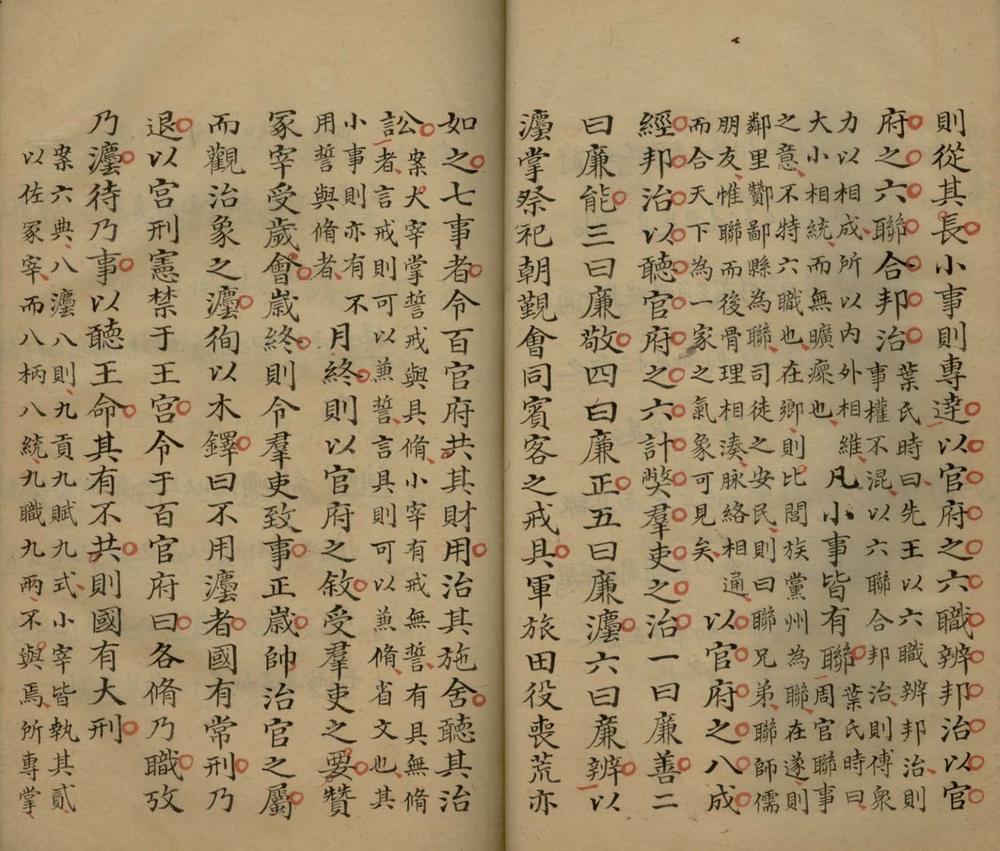 則從其長小事則專達以官府之六職辨邦治以官
府之六聯合邦治葉氏時曰先王以六職辨邦治則
事權不混以六聯合邦治則傅衆
力以相成所以内外相維
大小相統而無曠瘝也
凡小事皆有聯葉氏時曰
周官聯事
之意不特六職也在鄉則比閭族黨州為聯在遂則
鄰里酇鄙縣為聯司徒之安民則曰聯兄弟聯師儒
朋友惟聯而後骨理相湊脉絡相通
而合天下為一家之氣象可見矣
以官府之八成
經邦治以聽官府之六計弊羣吏之治一曰廉善二
曰廉能三曰廉敬四曰廉正五曰廉灋六曰廉辨以
灋掌祭祀朝覲會同賓客之戒具軍旅田役喪荒亦
如之七事者令百官府共其財用治其施舍聽其治
訟案大宰掌誓戒與具脩小宰有戒無誓有具無脩
者言戒則可以兼誓言具則可以兼脩省文也其
小事則亦有不
用誓與脩者
月終則以官府之敘受羣吏之要贊
冢宰受歲會歲終則令羣吏致事正歲帥治官之屬
而觀治象之灋徇以木鐸曰不用灋者國有常刑乃
退以宮刑憲禁于王宮令于百官府曰各脩乃職攷
乃灋待乃事以聽王命其有不共則國有大刑
案六典八灋八則九貢九賦九式小宰皆執其貳
以佐冢宰而八柄八統九職九兩不與焉所專掌